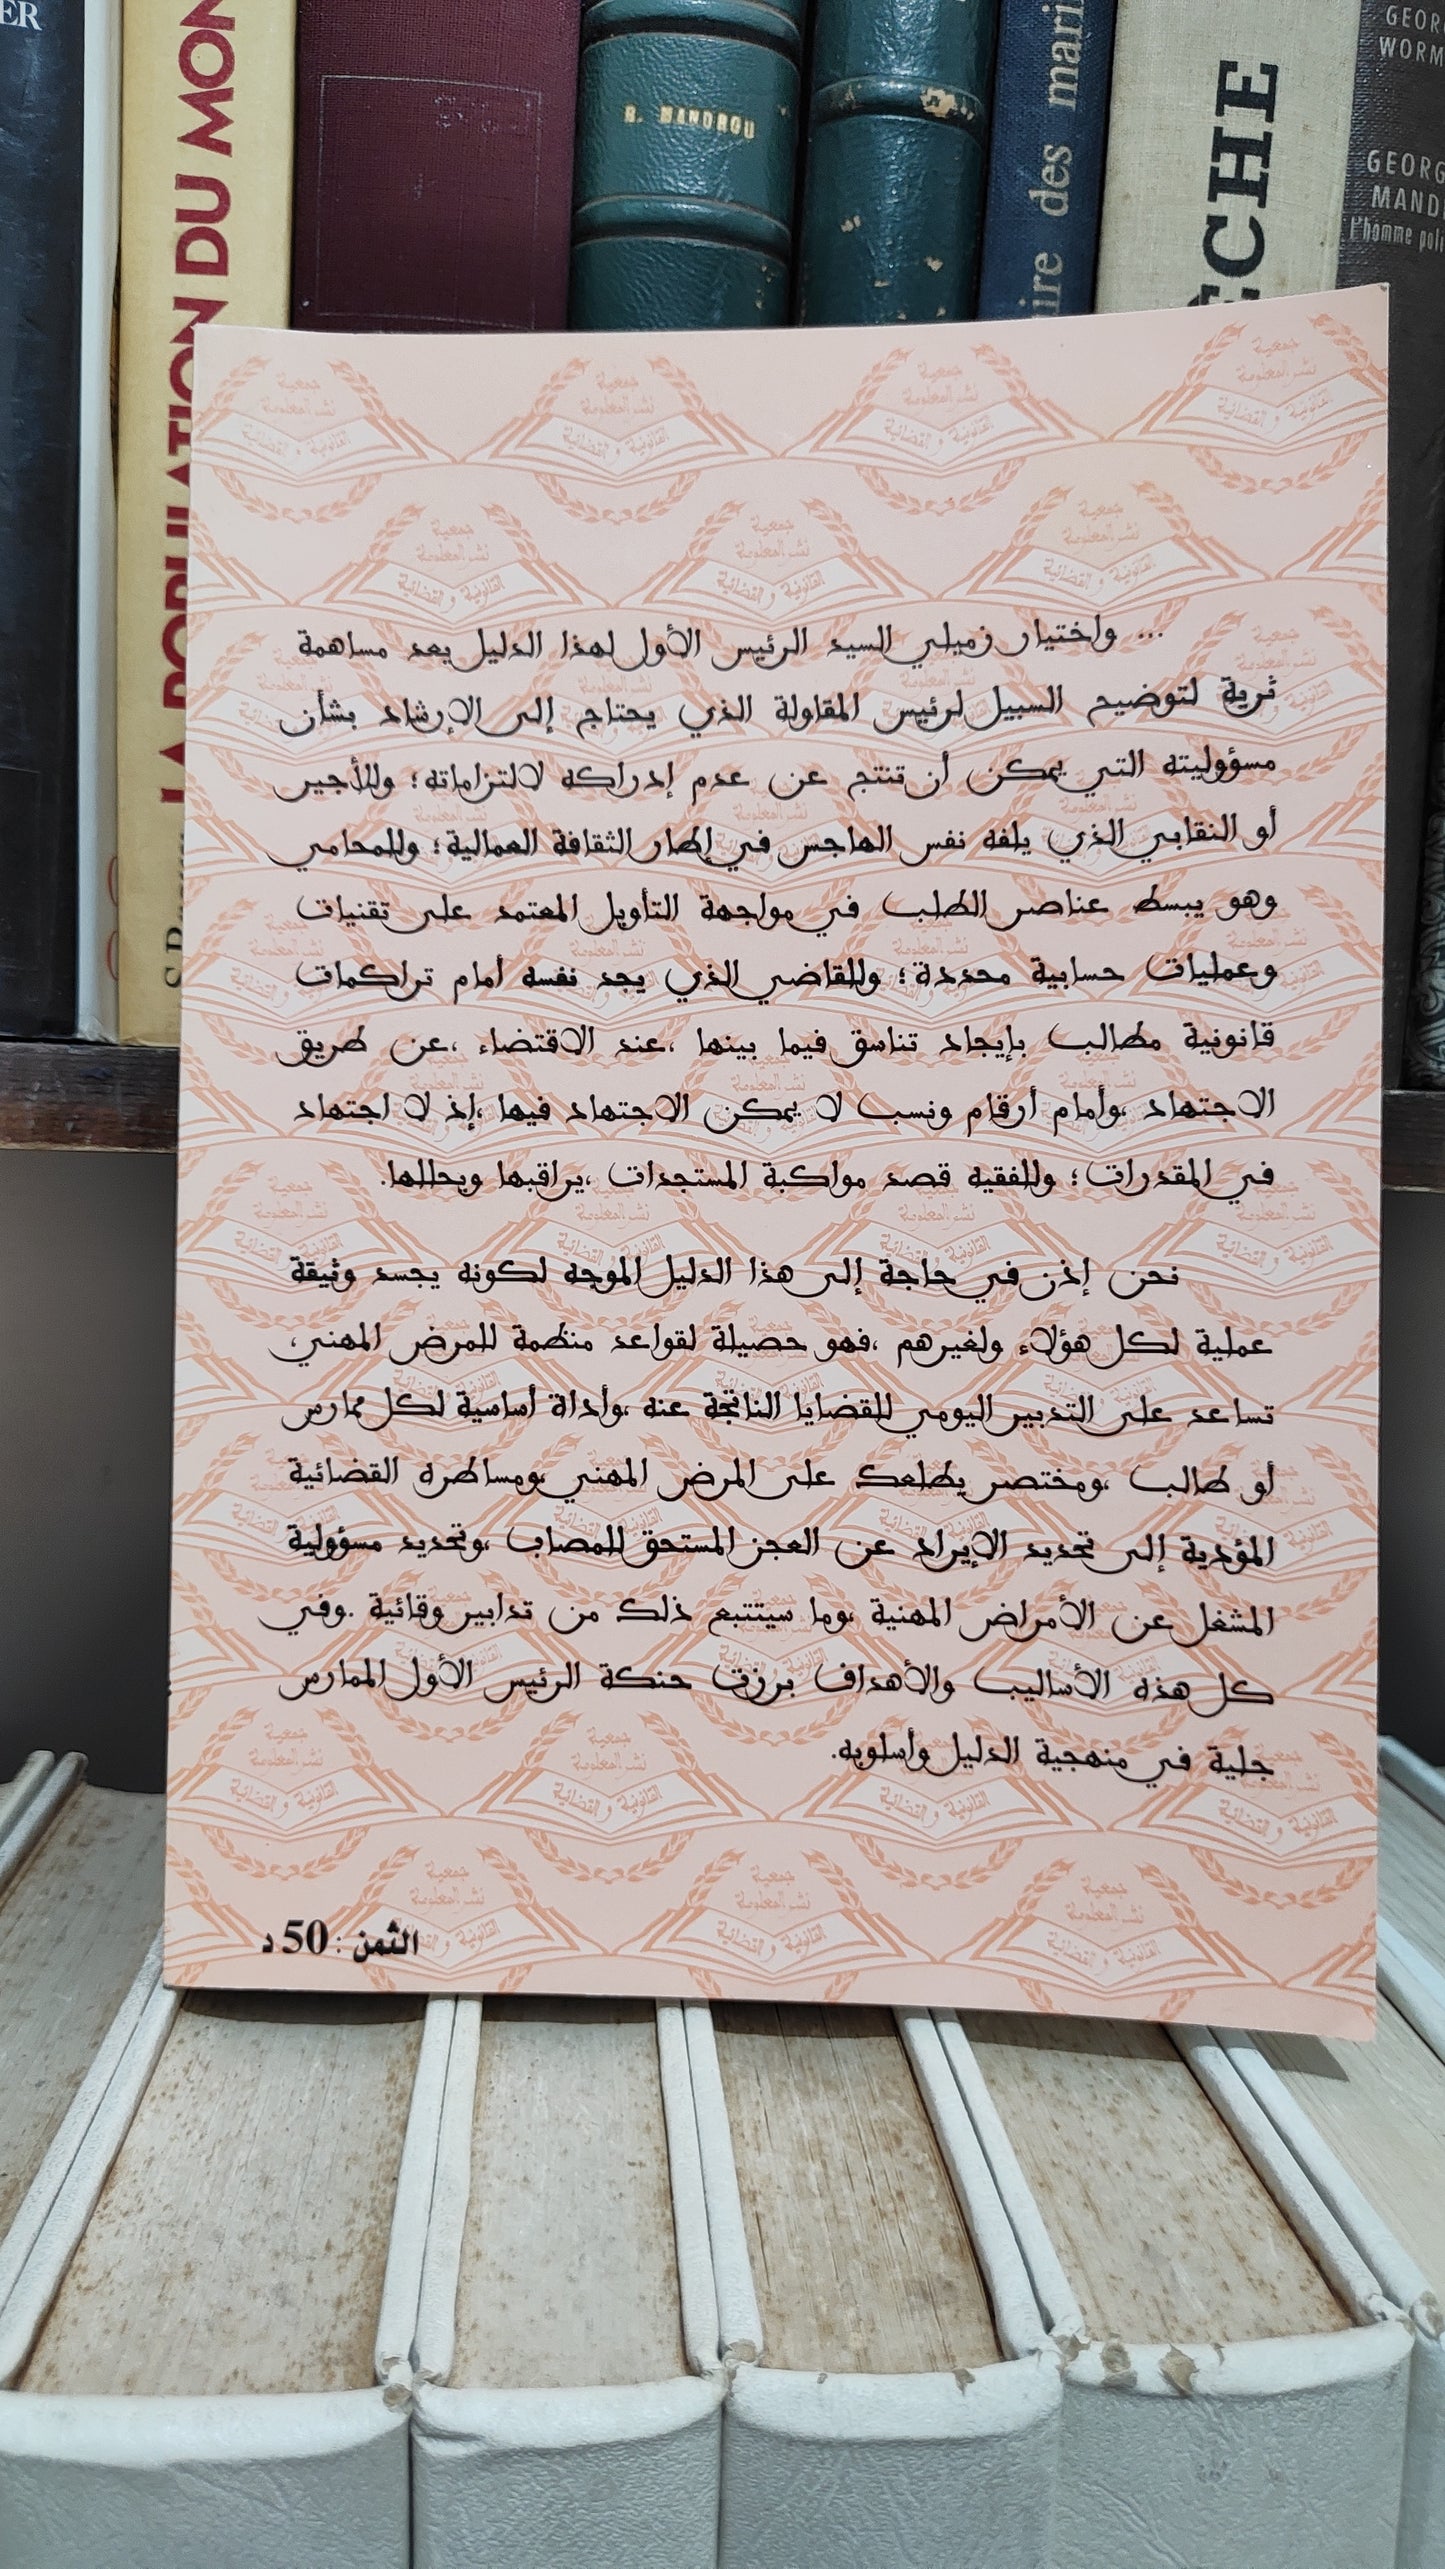 ER
LA POPULATION DU MON
R. MANDROU
ire des mari
ECHE
GEOR
WORM
GEORG
MAND
l'homme poli
جمعية
نشر المعلومة
القانونية و القضائية
... واختيار زميلي السيد الرئيس الأول لهذا الدليل يعد مساهمة
ثرية لتوضيح السبيل لرئيس المقاولة الذي يحتاج إلى الإرشاد بشأن
مسؤوليته التي يمكن أن تنتج عن عدم إدراكه لالتزاماته؛ وللأجير
أو النقابي الذي يلفه نفس الهاجس في إطار الثقافة العمالية؛ وللمحامي
وهو يبسط عناصر الطلب في مواجهة التأويل المعتمد على تقنيات
وعمليات حسابية محددة؛ وللقاضي الذي يجد نفسه أمام تراكمات
قانونية مطالب بإيجاد تناسق فيما بينها ،عند الاقتضاء ،عن طريق
الاجتهاد ،وأمام أرقام ونسب لا يمكن الاجتهاد فيها ،إذ لا اجتهاد
في المقدرات؛ وللفقيه قصد مواكبة المستجدات ،يراقبها ويحللها.
نحن إذن في حاجة إلى هذا الدليل الموجه لكونه يجسد وثيقة
عملية لكل هؤلاء ولغيرهم ،فهو حصيلة لقواعد منظمة للمرض المهني،
تساعد على التدبير اليومي للقضايا الناتجة عنه ،وأداة أساسية لكل ممارس
أو طالب ،ومختصر يطلعك على المرض المهني ،ومساطره القضائية
المؤدية إلى تحديد الإيراد عن العجز المستحق للمصاب ،وتحديد مسؤولية
المشغل عن الأمراض المهنية ،وما سيتتبع ذلك من تدابير وقائية .وفي
كل هذه الأساليب والأهداف برزت حنكة الرئيس الأول الممارس
جلية في منهجية الدليل وأسلوبه.
الثمن : 50 د